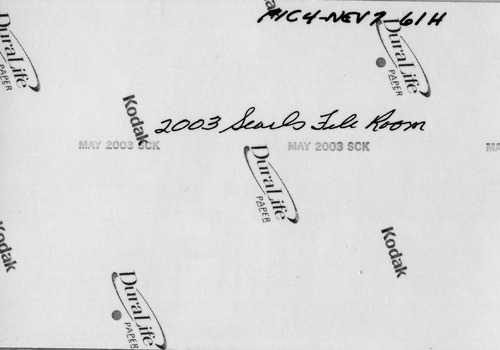 PIC4-NEV7-61H
DuraLife
PAPER
DuraLife
PAPER
Kodak
2003 Searls File Room
MAY 2003 SCK
MAY 2003 SCK
MA
DuraLife
PAPER
Kodak
Kodak
DuraLife
PAPER